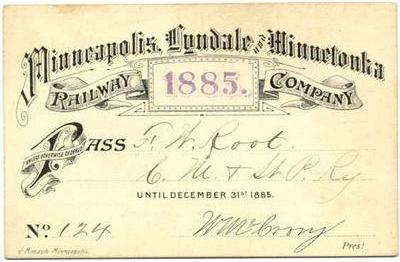 Minneapolis, Lyndale and Minnetonka
RAILWAY 1885. COMPANY
PASS F. W. Root.
UNLESS OTHERWISE ORDERED
C. M. & St. P. Ry
UNTIL DECEMBER 31ST 1885.
No. 124 W McCrory
Prest
J. Monasch Minneapolis.